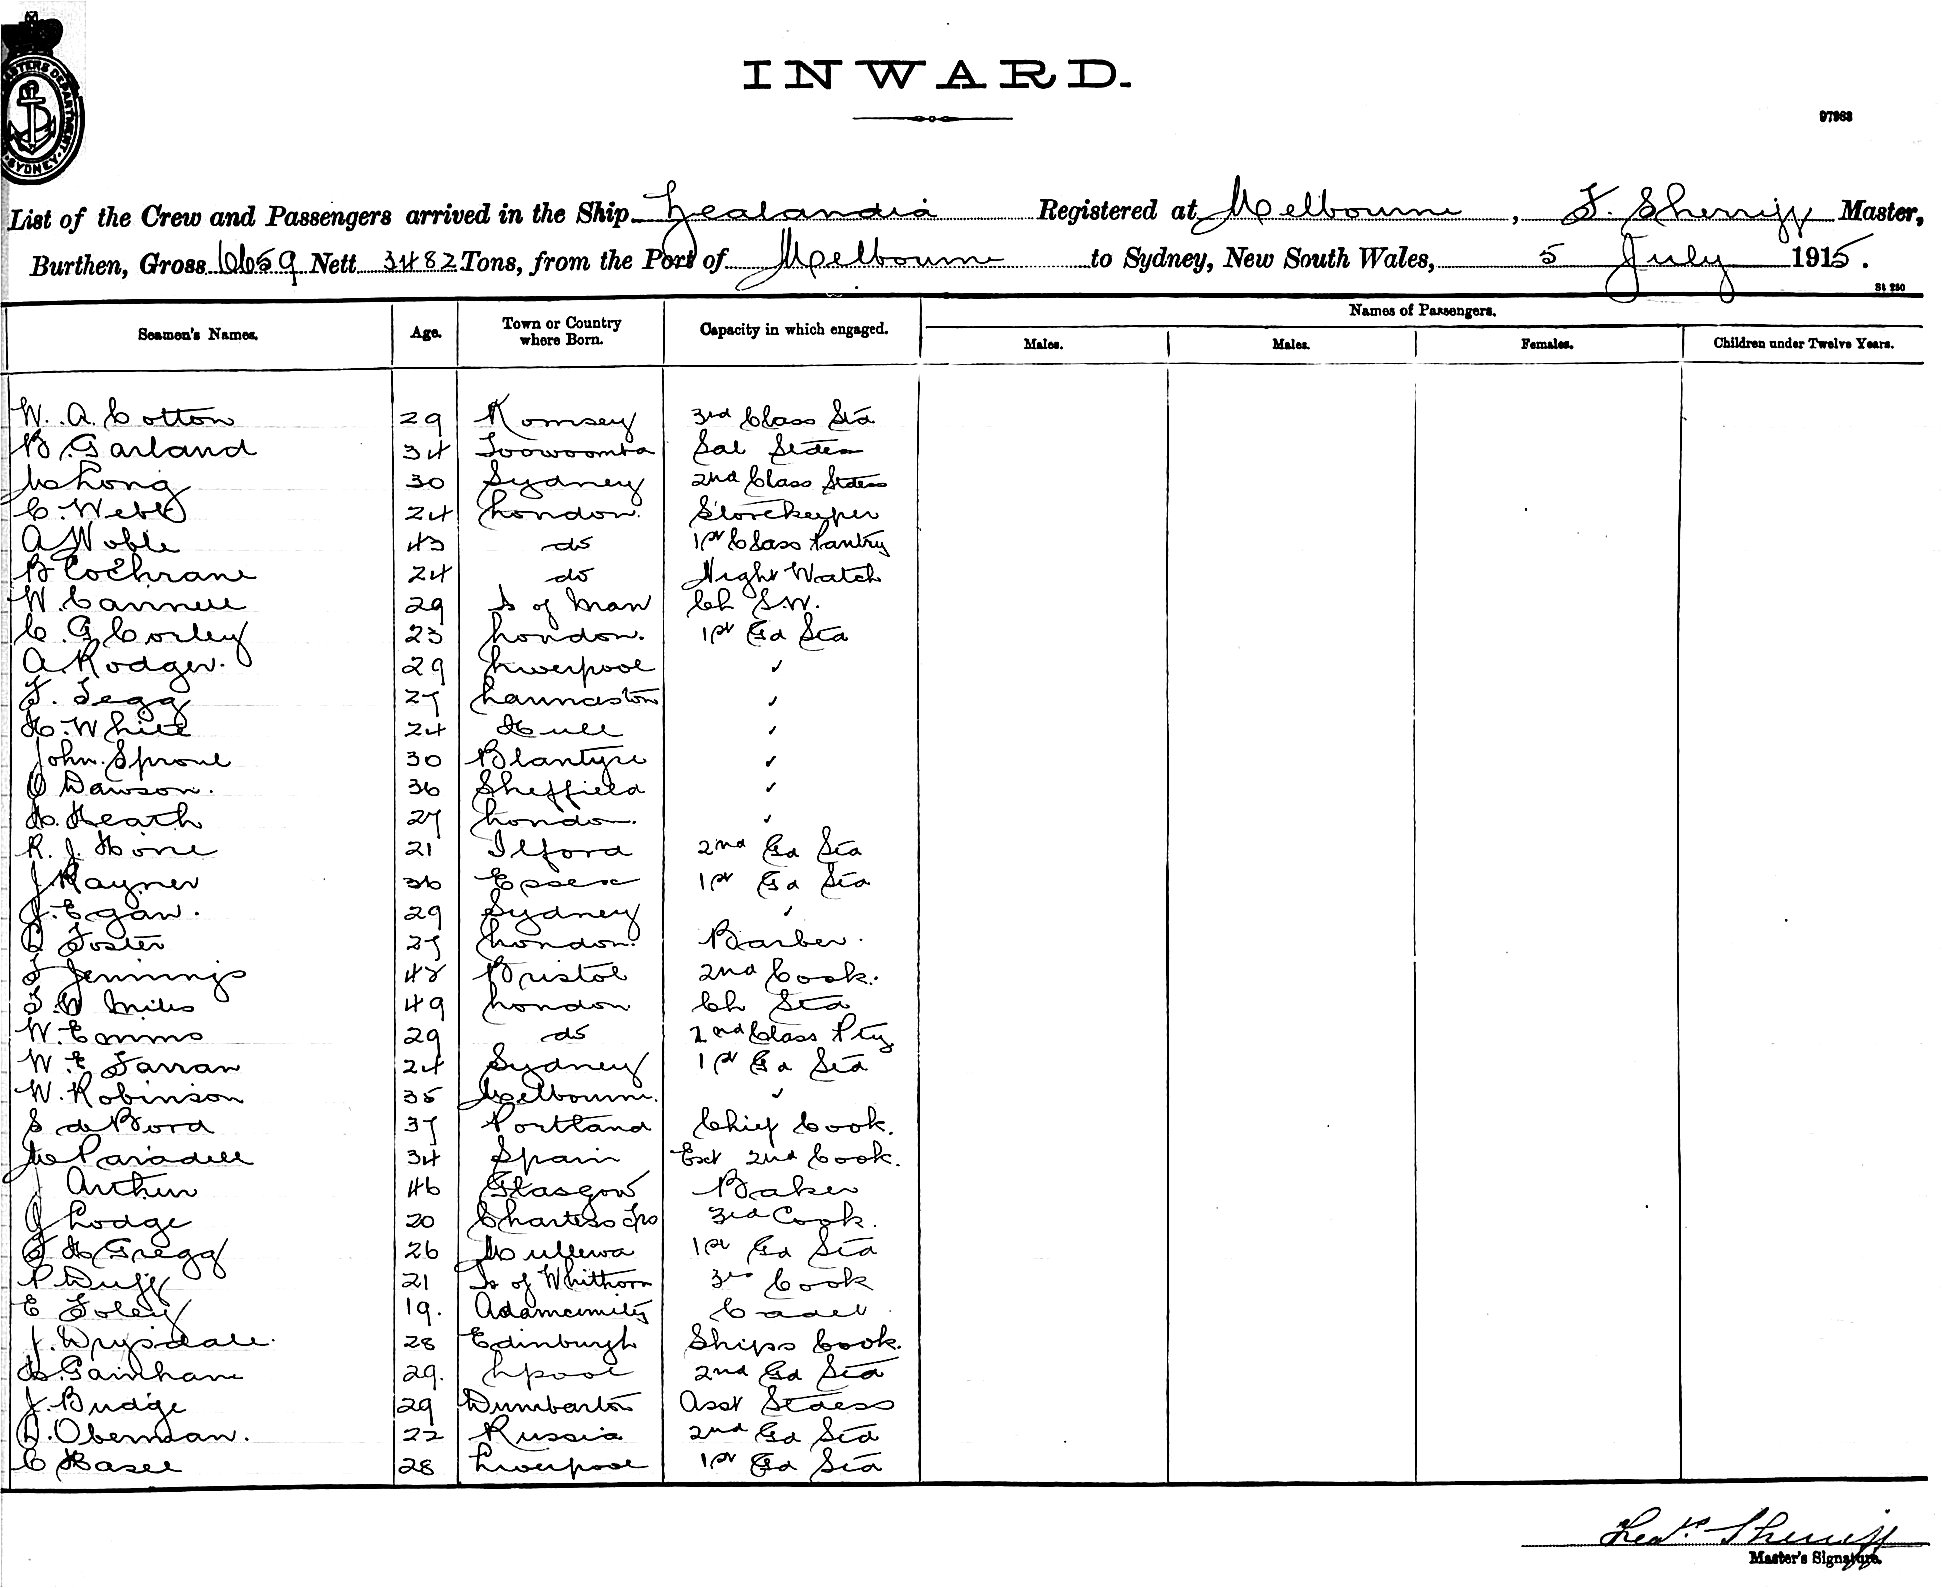 INWARD.
97963
List of the Crew and Passengers arrived in the Ship Zealandia Registered at Melbourne, F. Sherriff Master,
Burthen, Gross 6659 Nett 3482 Tons, from the Port of Melbourne to Sydney, New South Wales, 5 July 1915.
St 250
Names of Passengers.
Seamen's Names. Age. Town or Country where Born. Capacity in which engaged. Males. Males. Females. Children under Twelve Years.
W. A. Cotton 29 Romsey 3rd Class Std
B. Garland 34 Toowoomba Sal Stdess
M Long 30 Sydney 2nd Class Stdess
C. Webb 24 London. Storekeeper
A Noble 43 do 1st Class Pantry
B Cochrane 24 do Night Watch
W. Cannell 29 I of Man Ch S.W.
C. G Corley 23 London. 1st Gd Std
A Rodger. 29 Liverpool ✓
F. Tegg 27 Launceston ✓
H. White 24 Hull ✓
John. Sproul 30 Blantyre ✓
O Dawson. 36 Sheffield ✓
H. Heath 27 London. ✓
R. J. Hone 21 Ilford 2nd Gd Std
J Rayner 36 Essex 1st Gd Std
J. Egan. 29 Sydney ✓
Foster 27 London. Barber.
Jennings 48 Bristol 2nd Cook.
F. W Miles 49 London Ch Std
W. Emms 29 do 2nd Class Pty
W. E Farran 24 Sydney 1st Gd Std
W. Robinson 35 Melbourne. ✓
S de Bord 37 Portland Chief Cook.
M Paradell 34 Spain Ext 2nd Cook.
J Arthur 46 Glasgow Baker
J Lodge 20 Charters 3rd Cook.
H Gregg 26 Mullewa 1st Gd Std
P Duff 21 Is of Whithorn 3rd Cook
E Foley 19. Cadet
J. Drysdale. 28 Edinburgh Ships Cook.
Gainham 29. Lpool 2nd Gd Std
J. Budge 29 Dumbarton Asst Stdess
D. Oberman. 22 Russia 2nd Gd Std
C Hasell 28 Liverpool 1st Gd Std
Sherriff
Master's Signature.